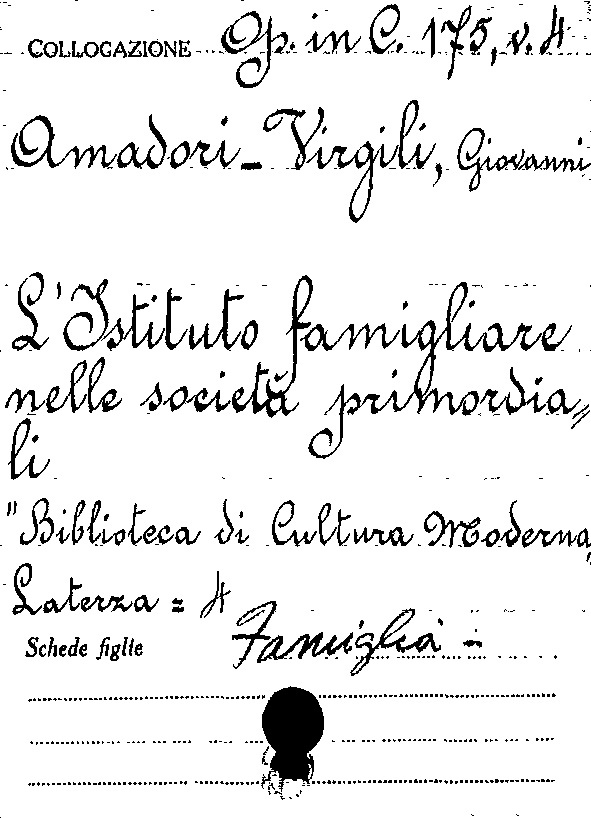 COLLOCAZIONE Op. in C. 175, v. 4
Amadori-Virgili, Giovanni
L'Istituto famigliare
nelle società primordia=
li
"Biblioteca di Cultura Moderna,
Laterza = 4
Schede figlie Famiglia -